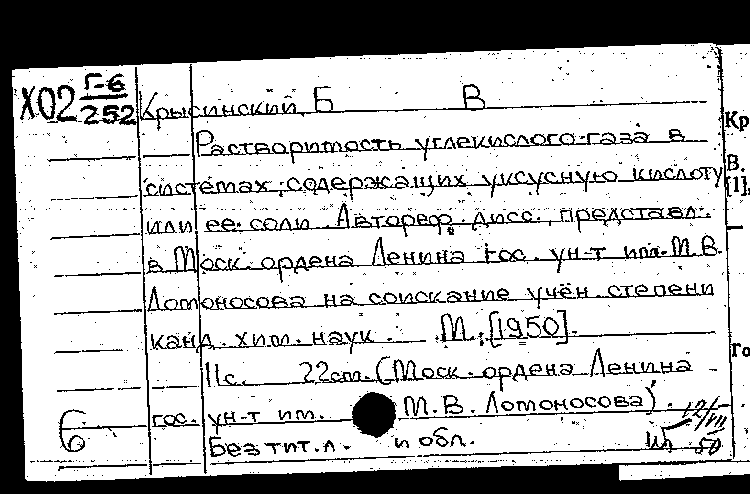 Х02 Г-6
252
Крысинский, Б В
Растворимость углекислого газа в
системах, содержащих уксусную кислоту
или ее соли. Автореф. дисс., представл.
в Моск. ордена Ленина гос. ун-т им. М.В.
Ломоносова на соискание учён. степени
канд. хим. наук. М., [1950].
11с. 22cm. (Моск. ордена Ленина
гос. ун-т им. М.В. Ломоносова).
Без тит. л. и обл.
б
12/VII
50
Кр
В.
[1],
Го